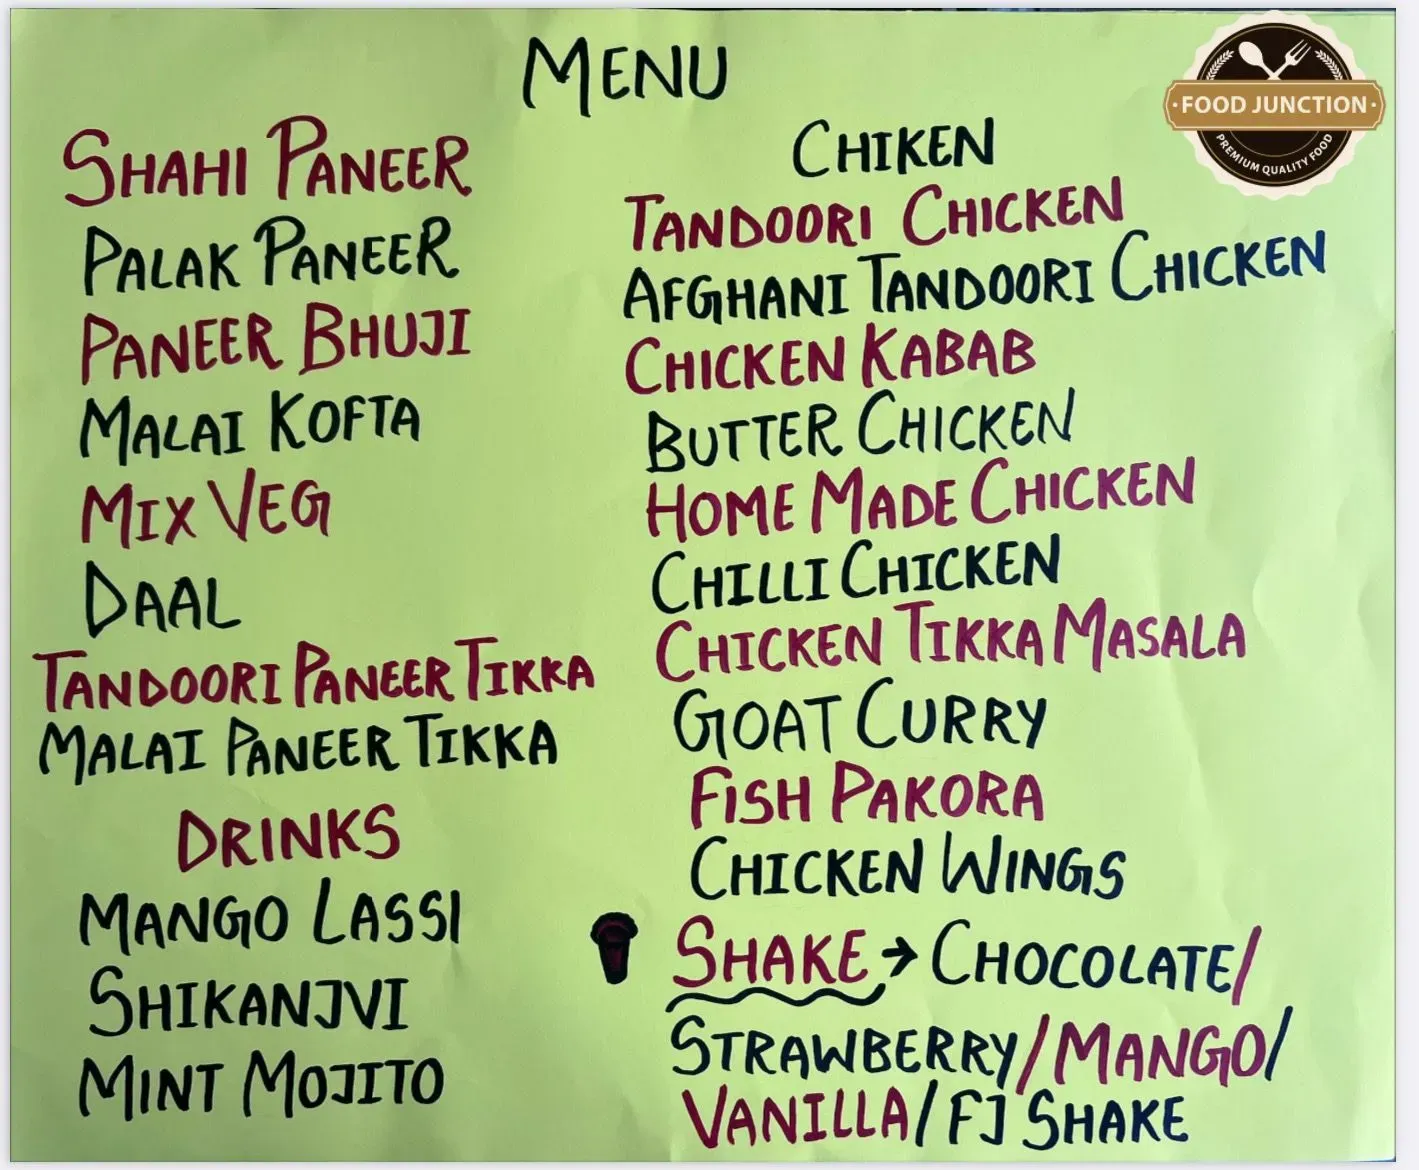 MENU
SHAHI PANEER
PALAK PANEER
PANEER BHUJI
MALAI KOFTA
MIX VEG
DAAL
TANDOORI PANEER TIKKA
MALAI PANEER TIKKA
DRINKS
MANGO LASSI
SHIKANJVI
MINT MOJITO
CHIKEN
TANDOORI CHICKEN
AFGHANI TANDOORI CHICKEN
CHICKEN KABAB
BUTTER CHICKEN
HOME MADE CHICKEN
CHILLI CHICKEN
CHICKEN TIKKA MASALA
GOAT CURRY
FISH PAKORA
CHICKEN WINGS
SHAKE → CHOCOLATE/
STRAWBERRY/MANGO/
VANILLA/FJ SHAKE
·FOOD JUNCTION·
PREMIUM QUALITY FOOD